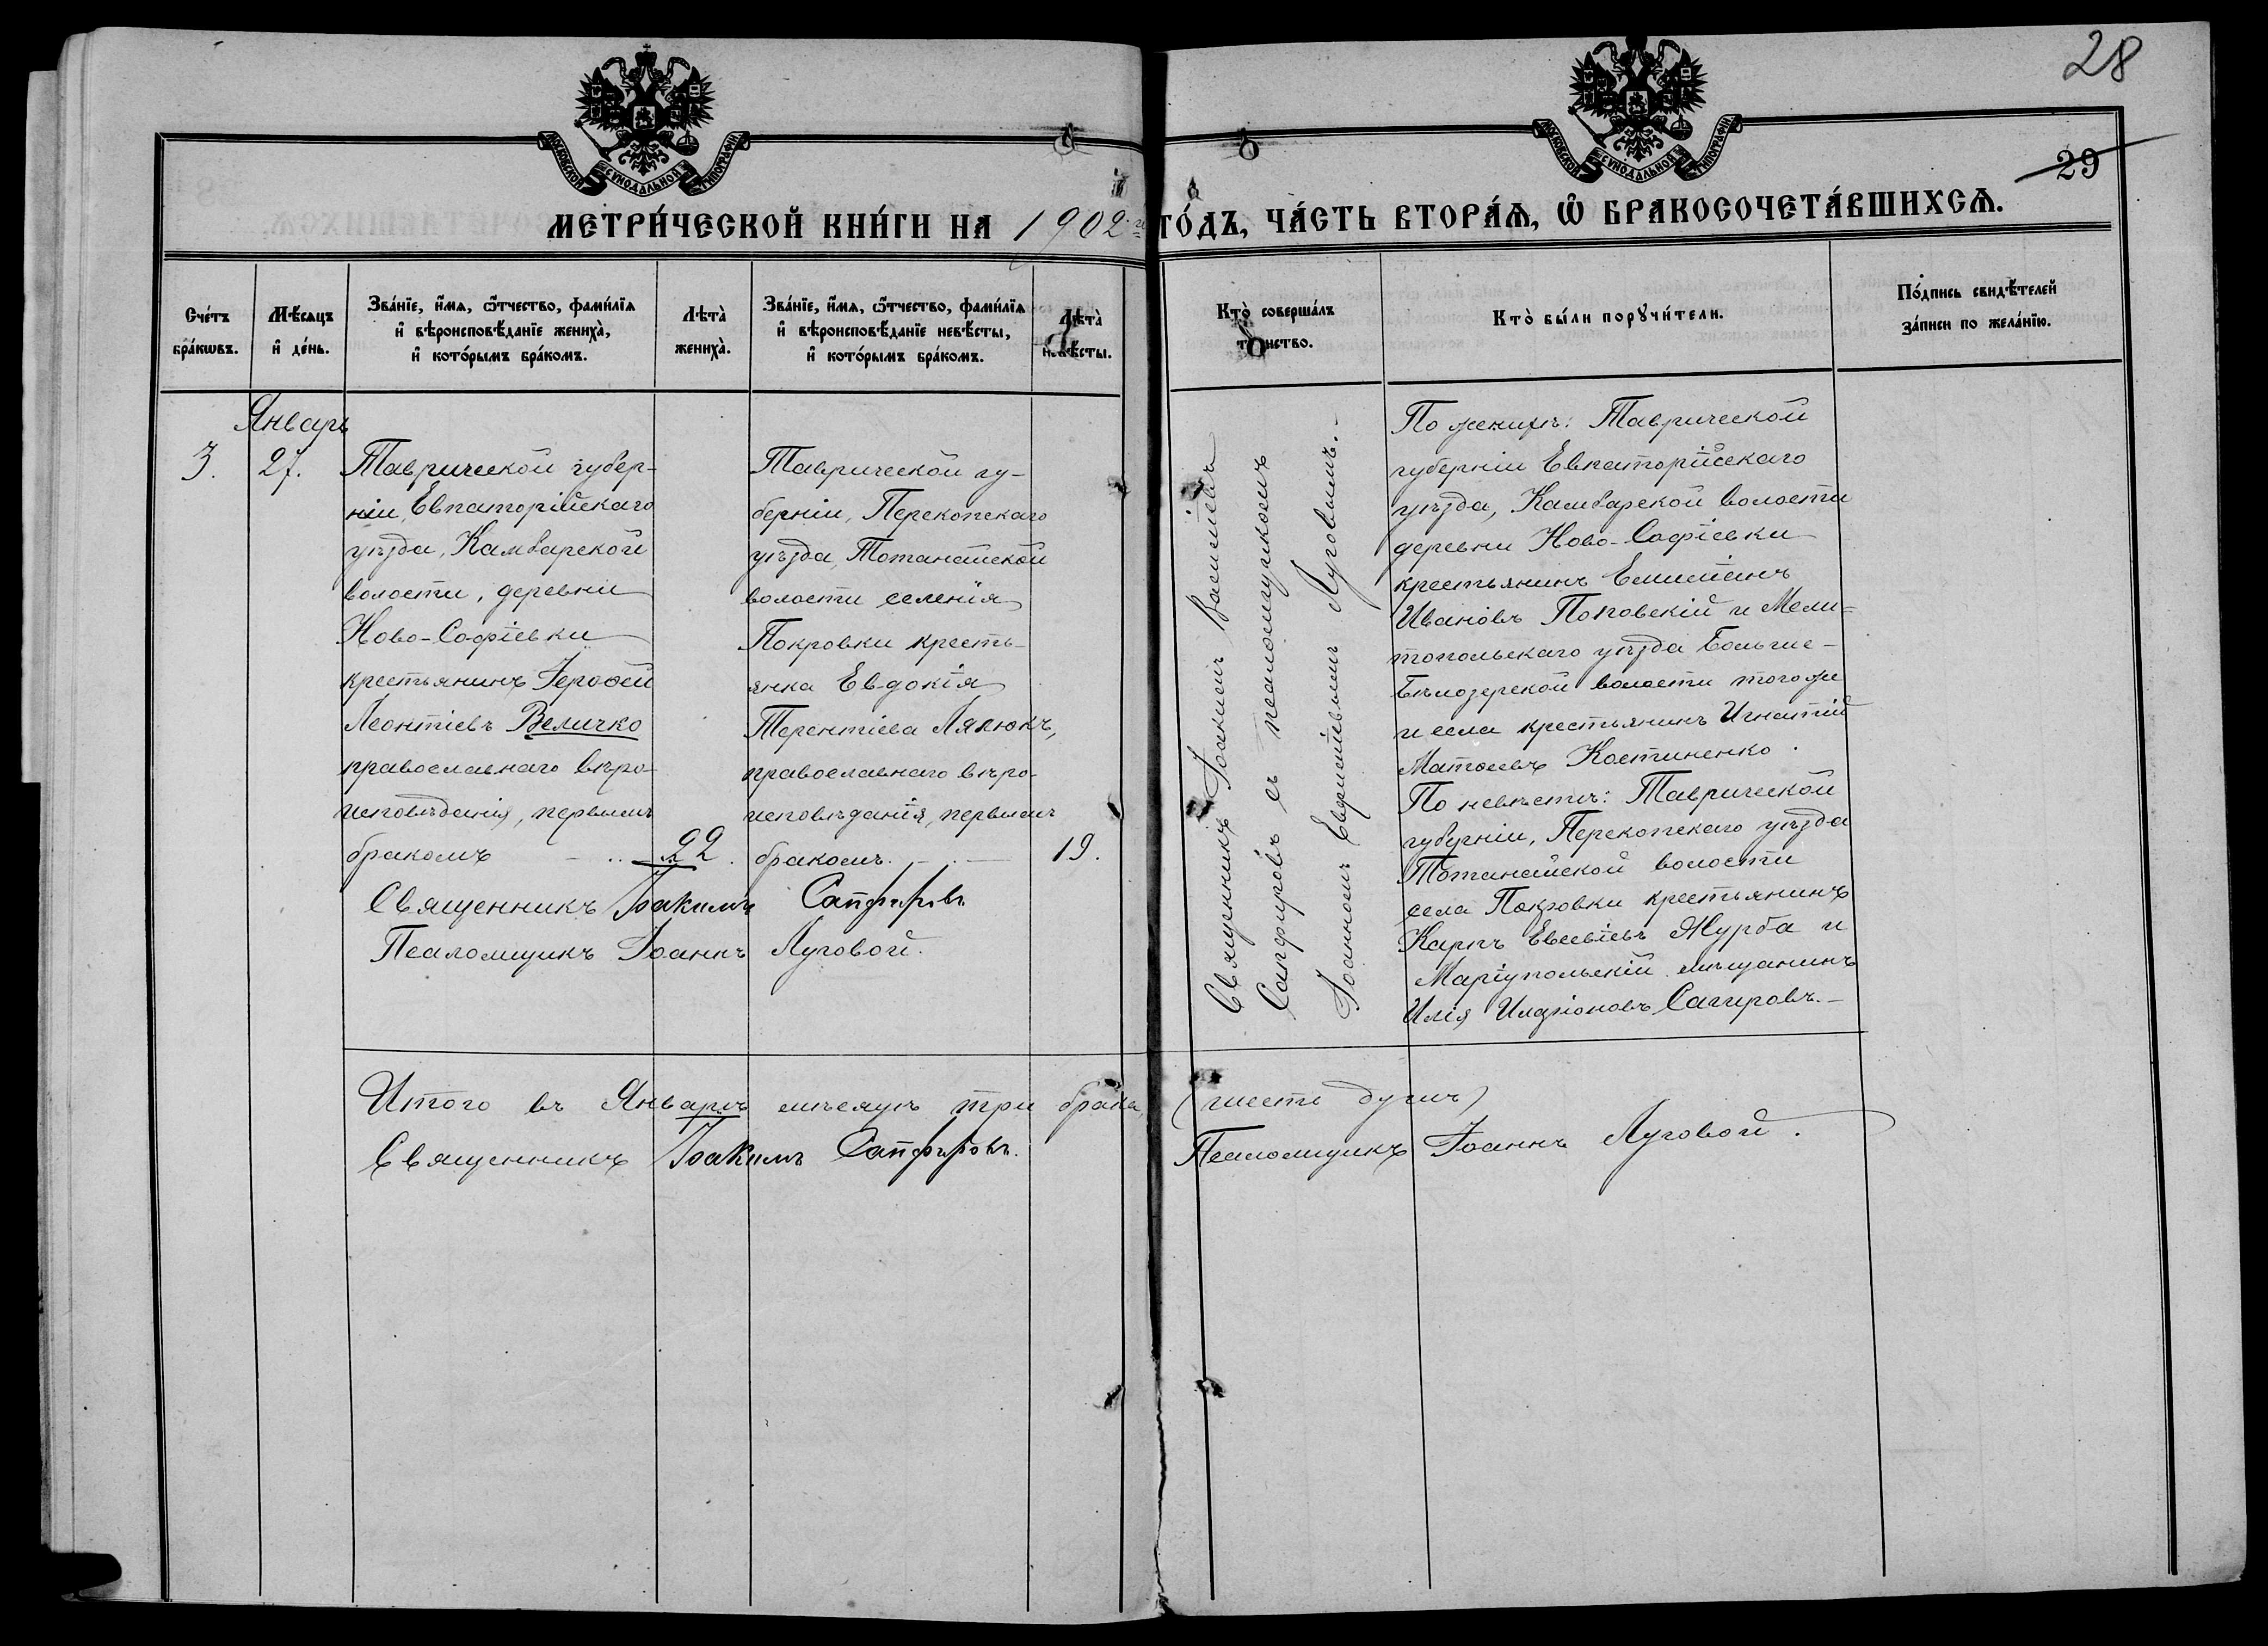 28
29
МОСКОВСКОЙ СѴНОДАЛЬНОЙ ТИПОГРАФІИ
МОСКОВСКОЙ СѴНОДАЛЬНОЙ ТИПОГРАФІИ
МЕТРИ́ЧЕСКОЙ КНИ́ГИ НА 1902 го ГО́ДЪ, ЧА́СТЬ ВТОРА́Ѧ, Ѽ БРАКОСОЧЕТА́ВШИХСѦ.
Сче́тъ
бра́кѡвъ.
Мѣ́сѧцъ
и҆ де́нь.
Зва́нїе, и҆́мѧ, ѻ҆́тчество, фами́лїѧ
и҆ вѣроисповѣ́данїе жениха̀,
и҆ кото́рымъ бра́комъ.
Лѣта̀
жениха̀.
Зва́нїе, и҆́мѧ, ѻ҆́тчество, фами́лїѧ
и҆ вѣроисповѣ́данїе невѣ́сты,
и҆ кото́рымъ бра́комъ.
Лѣта̀
невѣ́сты.
Кто̀ соверша́лъ
та́инство.
Кто̀ бы́ли порꙋчи́тели.
По́дпись свидѣ́телей
за́писи по жела́нїю.
Январь
3.
27.
Таврической губер-
ніи, Евпаторійскаго
уѣзда, Камбарской
волости, деревни
Ново-Софіевки
крестьянинъ Іерофей
Леонтіевъ Величко
православнаго вѣро-
исповѣданія, первымъ
бракомъ 22.
Таврической гу-
берніи, Перекопскаго
уѣзда, Тотанайской
волости селенія
Покровки кресть-
янка Евдокія
Терентіева Лялюкъ,
православнаго вѣро-
исповѣданія, первымъ
бракомъ. 19.
Священникъ Іоакимъ Сапфировъ
Псаломщикъ Іоаннъ Луговой.
Священникъ Іоакимъ Василіевъ
Сапфировъ съ псаломщикомъ
Іоанномъ Луговымъ.
По женихѣ: Таврической
губерніи Евпаторійскаго
уѣзда, Камбарской волости
деревни Ново-Софіевки
крестьянинъ Емиліанъ
Ивановъ Поповскій и Мели-
топольскаго уѣзда Больше-
Бѣлозерской волости того же
и села крестьянинъ Игнатій
Матѳеевъ Костиненко.
По невѣстѣ: Таврической
губерніи, Перекопскаго уѣзда
Тотанайской волости
села Покровки крестьянинъ
Карпъ Евсевіевъ Журба и
Маріупольскій мѣщанинъ
Илія Иларіоновъ Сагировъ.
Итого въ Январѣ мѣсяцѣ три брака, (шесть душъ)
Священникъ Іоакимъ Сапфировъ. Псаломщикъ Іоаннъ Луговой.